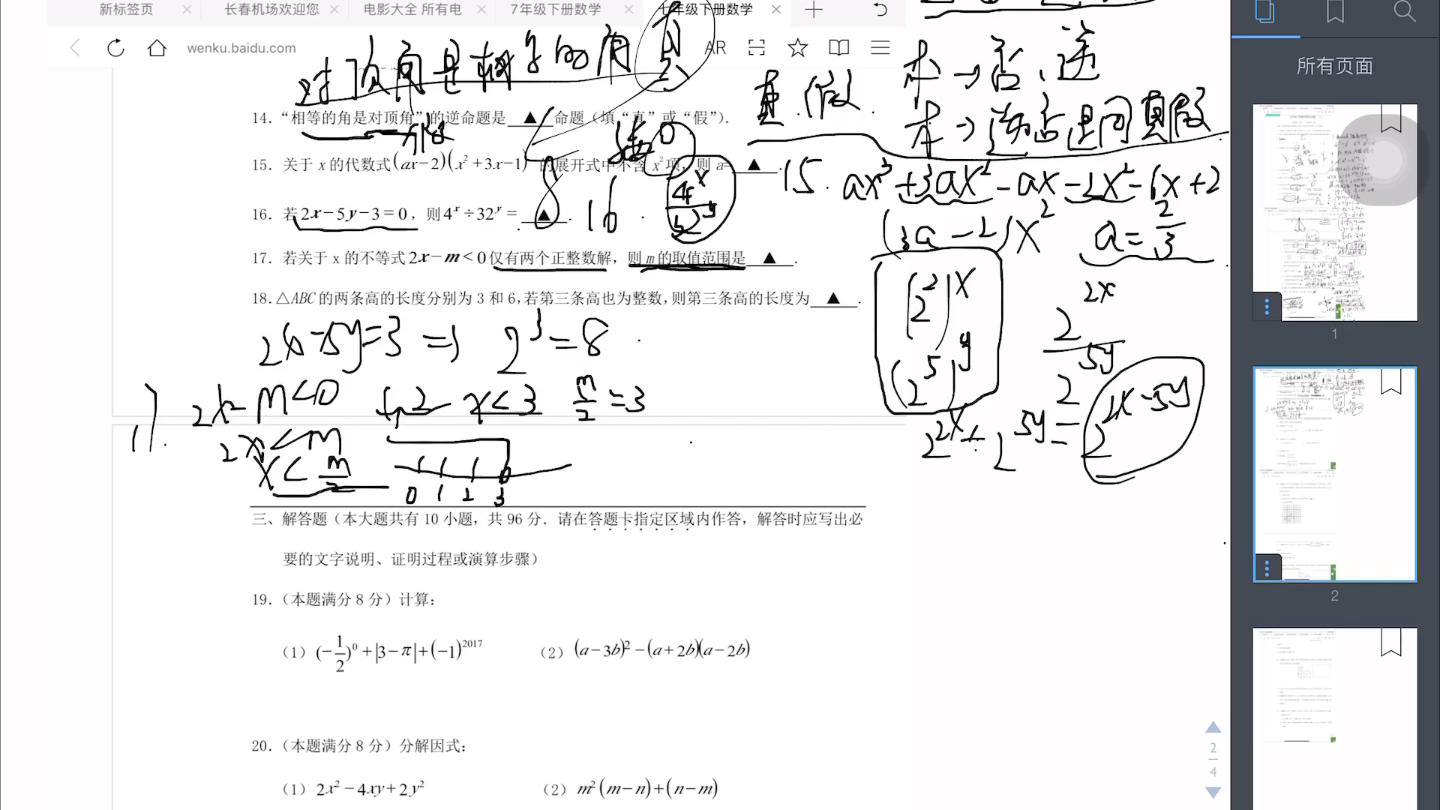 新标签页 长春机场欢迎您 电影大全 所有电 7年级下册数学 七年级下册数学
wenku.baidu.com AR
所有页面
对顶角是相等的角 真
真.假.
本→否、逆
本→逆否是同真假
14．“相等的角是对顶角”的逆命题是 ▲ 命题（填“真”或“假”）.
15．关于 x 的代数式(ax−2)(x²+3x−1) 的展开式中不含 x²项，则 a= ▲ .
15. ax³+3ax²−ax−2x²−6x+2
8 16. 4ˣ
16．若2x−5y−3=0，则4ˣ÷32ʸ= ▲ .
(3a−2)x² a=2/3
17．若关于 x 的不等式2x−m<0仅有两个正整数解，则 m 的取值范围是 ▲ .
(2²)ˣ
(2⁵)ʸ
18.△ABC的两条高的长度分别为 3 和 6,若第三条高也为整数,则第三条高的长度为 ▲ .
2x−5y=3 2³=8
2x−m<0 1,2 x<3 m/2=3
2x<m
x<m/2
0 1 2 3
2²ˣ÷2⁵ʸ=2²ˣ⁻⁵ʸ
三、解答题（本大题共有 10 小题，共 96 分．请在答题卡指定区域内作答，解答时应写出必
要的文字说明、证明过程或演算步骤）
19．（本题满分 8 分）计算：
（1）(−1/2)⁰+|3−π|+(−1)²⁰¹⁷ （2）(a−3b)²−(a+2b)(a−2b)
20．（本题满分 8 分）分解因式：
（1）2x²−4xy+2y² （2）m²(m−n)+(n−m)
1
2
2
4